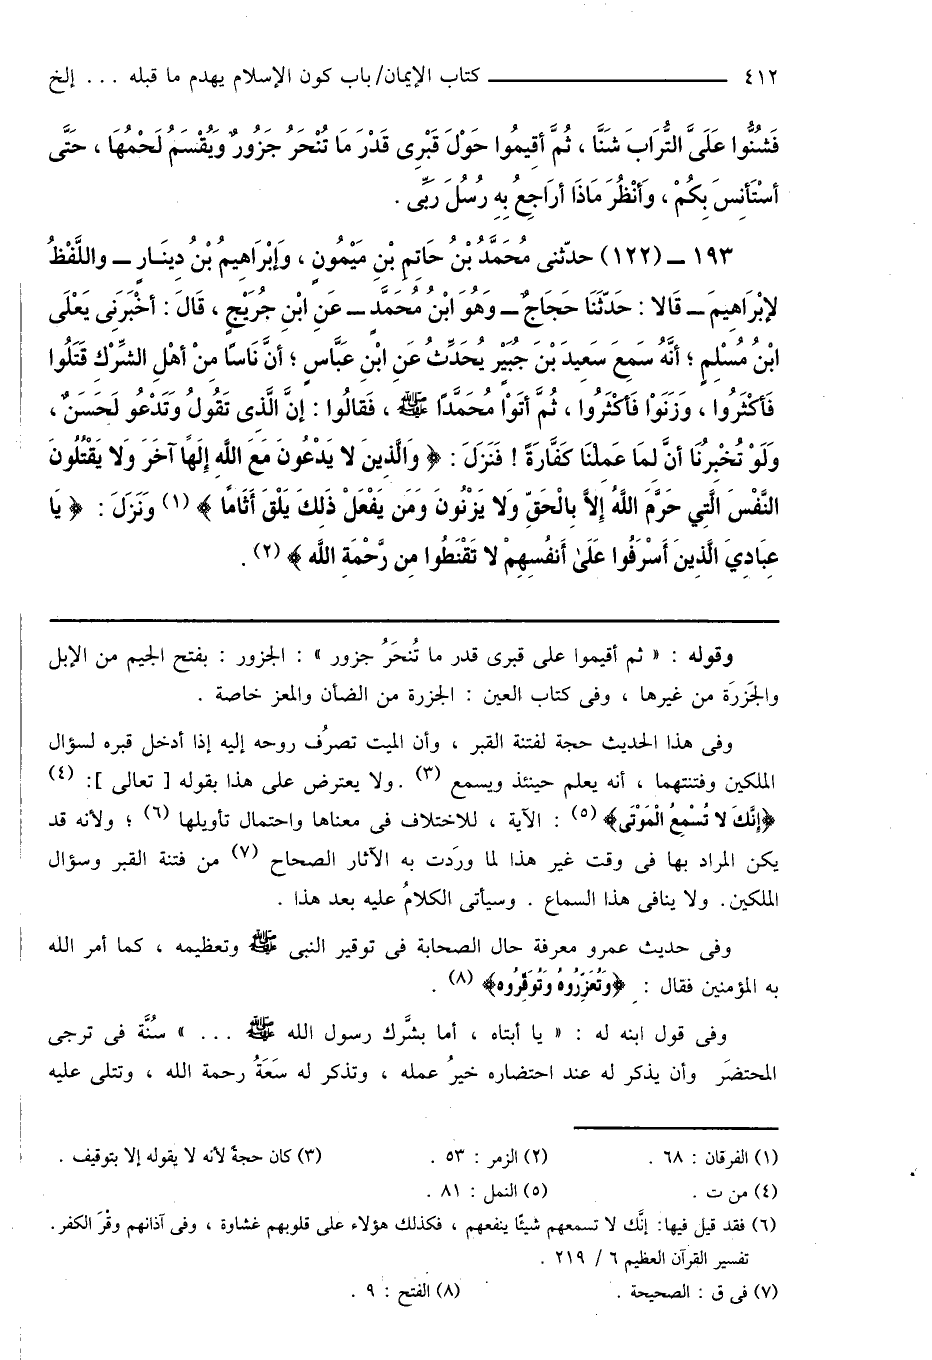 ٤١٢ ـــــــــ كتاب الإيمان/باب كون الإسلام يهدم ما قبله ... إلخ
فَشُنُّوا عَلَىَّ التُّرَابَ شَنَّا ، ثُمَّ أقيمُوا حَوْلَ قَبْرِى قَدْرَ مَا تُنْحَرُ جَزُورٌ وَيُقْسَمُ لَحْمُهَا ، حَتَّى
أسْتَأنِسَ بِكُمْ ، وَأنْظُرَ مَاذَا أرَاجِعُ بِهِ رُسُلَ رَبِّى .
١٩٣ ــ (١٢٢) حدّثنى مُحَمَّدُ بْنُ حَاتِمِ بْنِ مَيْمُونٍ ، وَإبْرَاهِيمُ بْنُ دِينَـارٍ ــ واللَّفْظُ
لإبْرَاهِيمَ ــ قَالا : حَدّثَنَا حَجَاجٌ ــ وَهُوَ ابْنُ مُحَمَّدٍ ــ عَنِ ابْنِ جُرَيْجٍ ، قَالَ : أخْبَرَنِى يَعْلَى
ابْنُ مُسْلِمٍ ؛ أنَّهُ سَمِعَ سَعِيدَ بْنَ جُبَيْرٍ يُحَدِّثُ عَنِ ابْنِ عَبَّاسٍ ؛ أنَّ نَاسًا مِنْ أهْلِ الشِّرْكِ قَتَلُوا
فَأكْثَرُوا ، وَزَنَوْا فَأكْثَرُوا ، ثُمَّ أتَوْا مُحَمَّدًا ﷺ ، فَقَالُوا : إنَّ الَّذِى تَقُولُ وَتَدْعُو لَحَسَنٌ ،
وَلَوْ تُخْبِرُنَا أنَّ لِمَا عَمِلْنَا كَفَّارَةً ! فَنَزَلَ : ﴿ وَالَّذِينَ لا يَدْعُونَ مَعَ اللَّهِ إِلَهًا آخَرَ وَلا يَقْتُلُونَ
النَّفْسَ الَّتِي حَرَّمَ اللَّهُ إِلاَّ بِالْحَقِّ وَلا يَزْنُونَ وَمَن يَفْعَلْ ذَلِكَ يَلْقَ أَثَامًا ﴾ (١) وَنَزَلَ : ﴿ يَا
عِبَادِيَ الَّذِينَ أَسْرَفُوا عَلَىٰ أَنفُسِهِمْ لا تَقْنَطُوا مِن رَّحْمَةِ اللَّه ﴾ (٢) .
وقوله : « ثم أقيموا على قبرى قدر ما تُنحَرُ جزور » : الجزور : بفتح الجيم من الإبل
والجَزرَة من غيرها ، وفى كتاب العين : الجزرة من الضأن والمعز خاصة .
وفى هذا الحديث حجة لفتنة القبر ، وأن الميت تصرُف روحه إليه إذا أدخل قبره لسؤال
الملكين وفتنتهما ، أنه يعلم حينئذ ويسمع (٣) .ولا يعترض على هذا بقوله [ تعالى ]: (٤)
﴿إِنَّكَ لا تُسْمِعُ الْمَوْتَى﴾ (٥) : الآية ، للاختلاف فى معناها واحتمال تأويلها (٦) ؛ ولأنه قد
يكن المراد بها فى وقت غير هذا لما ورَدت به الآثار الصحاح (٧) من فتنة القبر وسؤال
الملكين. ولا ينافى هذا السماع . وسيأتى الكلامُ عليه بعد هذا .
وفى حديث عمرو معرفة حال الصحابة فى توقير النبى ﷺ وتعظيمه ، كما أمر الله
به المؤمنين فقال : ﴿وَتُعَزِّرُوهُ وَتُوَقِّرُوه﴾ (٨) .
وفى قول ابنه له : « يا أبتاه ، أما بشَّرك رسول الله ﷺ ... » سُنَّة فى ترجى
المحتضَر وأن يذكر له عند احتضاره خيرُ عمله ، وتذكر له سَعَةُ رحمة الله ، وتتلى عليه
(١) الفرقان : ٦٨ . (٢) الزمر : ٥٣ . (٣) كان حجةً لأنه لا يقوله إلا بتوقيف .
(٤) من ت . (٥) النمل : ٨١ .
(٦) فقد قيل فيها: إنَّك لا تسمعهم شيئًا ينفعهم ، فكذلك هؤلاء على قلوبهم غشاوة ، وفى آذانهم وقْرَ الكفر.
تفسير القرآن العظيم ٦ / ٢١٩ .
(٧) فى ق : الصحيحة . (٨) الفتح : ٩ .